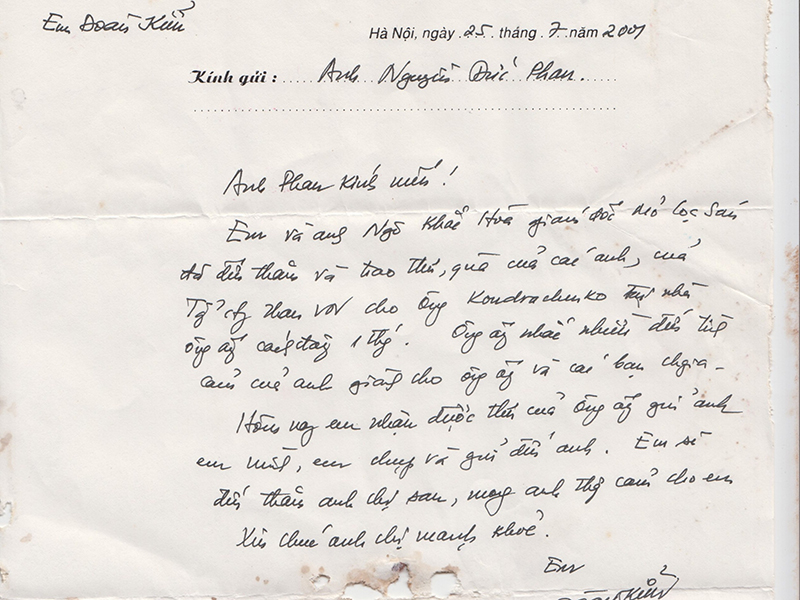 Em Đoàn Kiển
Hà Nội, ngày 25 tháng 7 năm 2001
Kính gửi : Anh Nguyễn Đức Phan.
Anh Phan kính mến!
Em và anh Ngô Khắc Hoà giám đốc Mỏ Cọc Sáu
đã đến thăm và trao thư, quà của các anh, của
Tổng cty than VN cho Ông Kondrachenko tại nhà
ông ấy cách đây 1 thg. Ông ấy nhắc nhiều đến tình
cảm của anh giành cho ông ấy và các bạn chgia.
Hôm nay em nhận được thư của Ông ấy gửi anh
em mình, em chụp và gửi đến anh. Em sẽ
đến thăm anh chị sau, mong anh thg cảm cho em
Xin chúc anh chị mạnh khoẻ.
Em
Đoàn Kiển